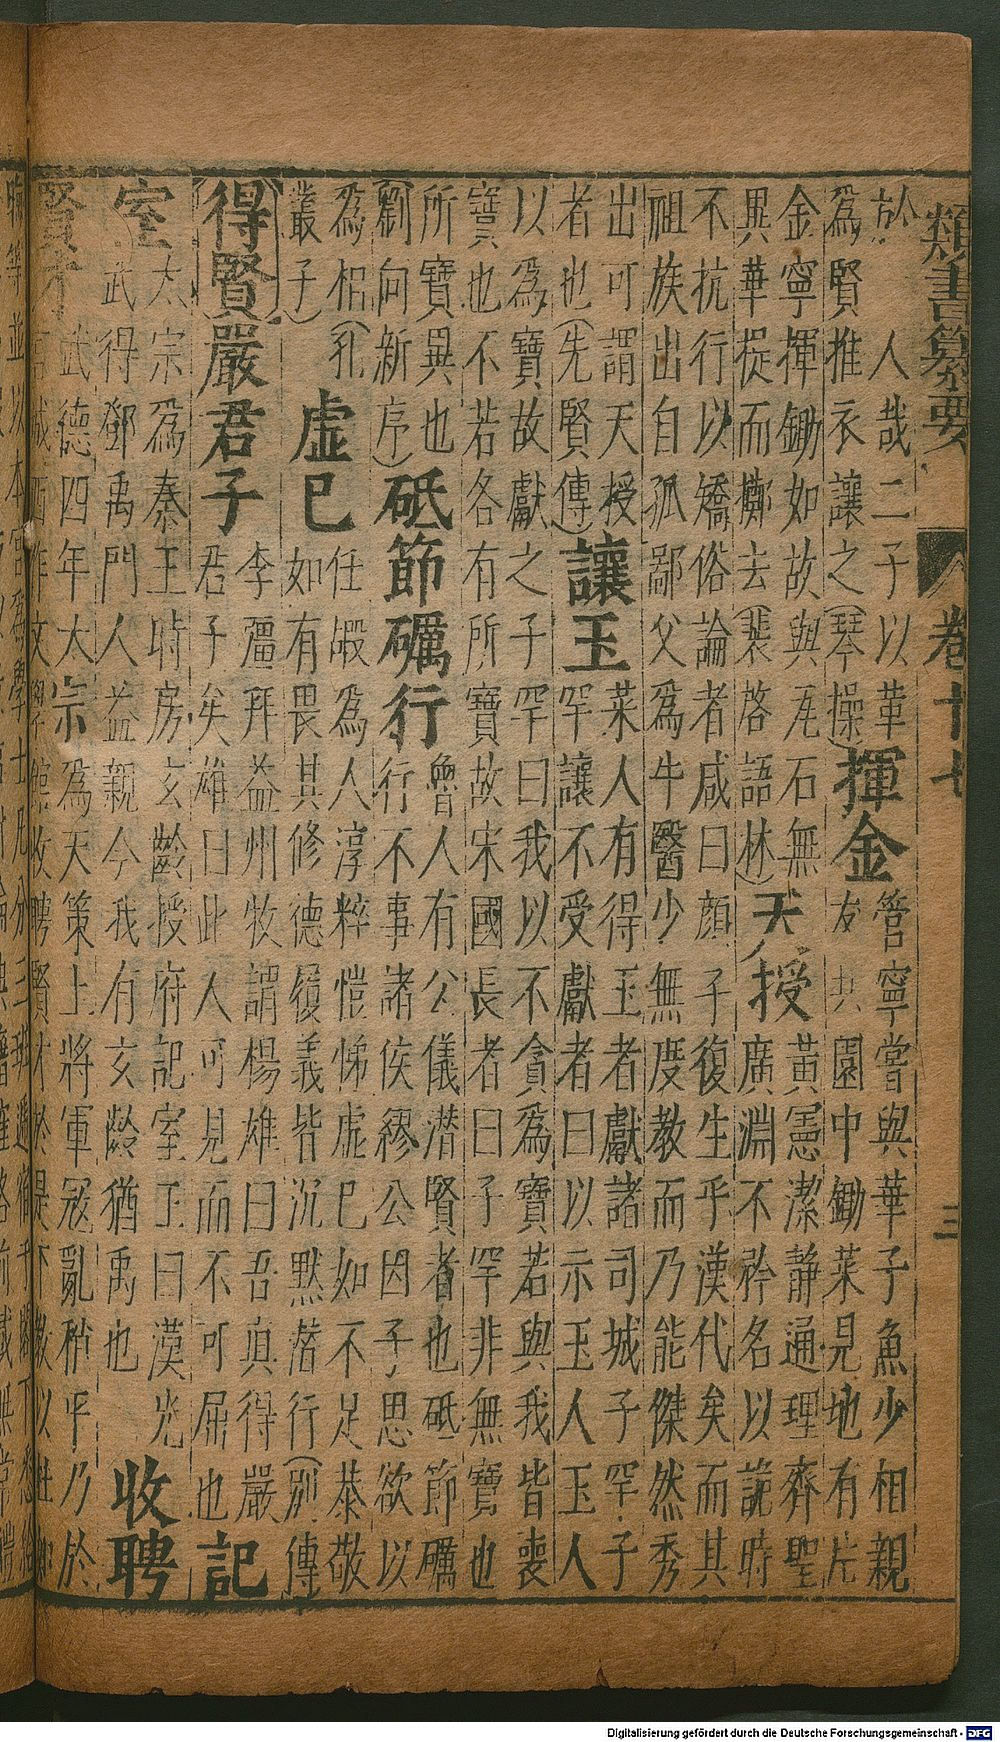 類書纂要 卷廿七 三
於人哉二子以革
為賢推衣讓之(琴操)
揮金
管寧嘗與華子魚少相親
友共園中鋤菜見地有片
金寧揮鋤如故與瓦石無
異華捉而擲去(裴啓語林)
天授
黃憲潔靜通理齊聖
廣淵不矜名以詭時
不抗行以矯俗論者咸曰顏子復生乎漢代矣而其
祖族出自孤鄙父為牛醫少無度教而乃能傑然秀
出可謂天授
者也(先賢傳)
讓玉
萊人有得玉者獻諸司城子罕子
罕讓不受獻者曰以示玉人玉人
以為寶故獻之子罕曰我以不貪為寶若與我皆喪
寶也不若各有所寶故宋國長者曰子罕非無寶也
所寶異也
(劉向新序)
砥節礪行
魯人有公儀潛賢者也砥節礪
行不事諸侯繆公因子思欲以
為相(孔
叢子)
虛已
任嘏為人淳粹愷悌虛已如不足恭敬
如有畏其修德履義皆沉默潛行(別傳
得賢嚴君子
李彊拜益州牧謂楊雄曰吾真得嚴
君子矣雄曰此人可見而不可屈也
記
室
太宗為秦王時房玄齡授府記室王曰漢光
武得鄧禹門人益親今我有玄齡猶禹也
收聘
賢才
武德四年太宗為天策上將軍寇亂稍平乃於
宮城西作文學館收聘賢材於是下教以杜如
Digitalisierung gefördert durch die Deutsche Forschungsgemeinschaft - DFG